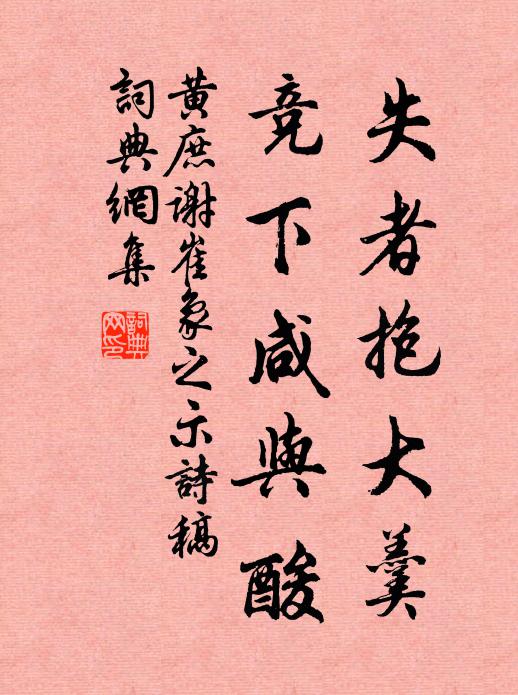 失者抱大羹
竞下咸與酸
黄庶謝崔象之示詩稿
詞典網集
詞典網印